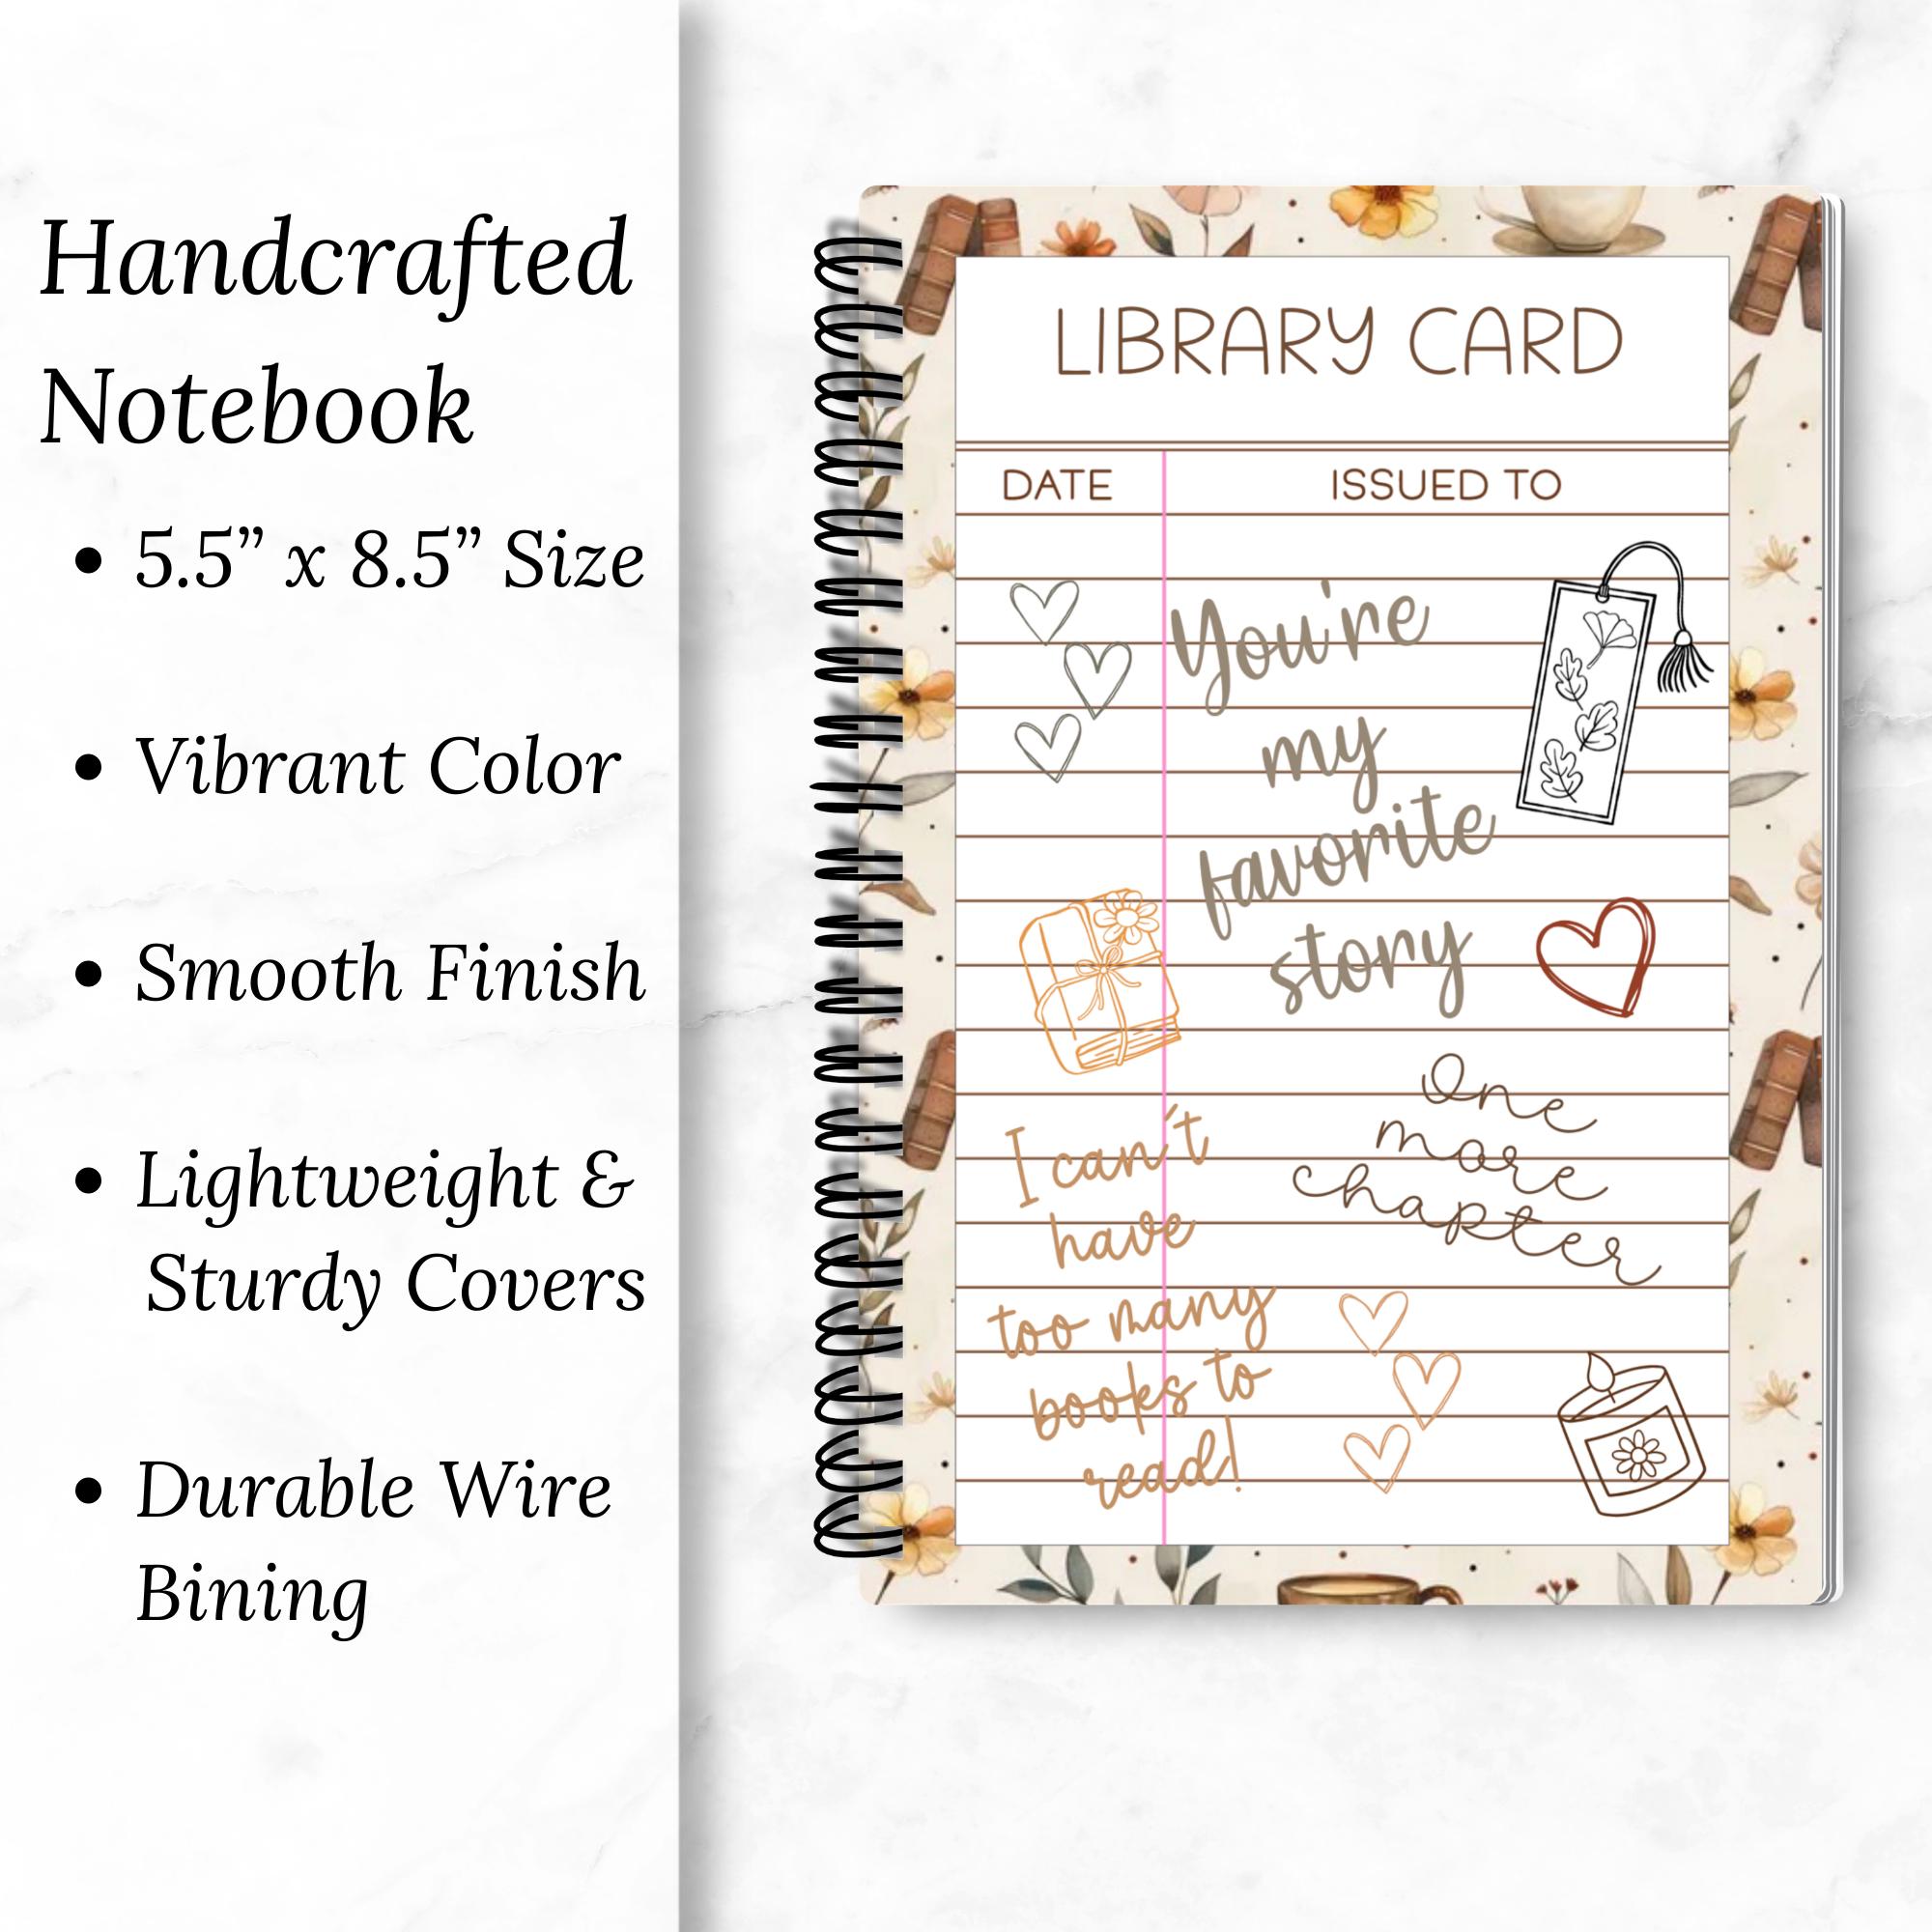 Handcrafted
Notebook
• 5.5” x 8.5” Size
• Vibrant Color
• Smooth Finish
• Lightweight &
Sturdy Covers
• Durable Wire
Bining
LIBRARY CARD
DATE ISSUED TO
You're
my
favorite
story
One
more
chapter
I can't
have
too many
books to
read!